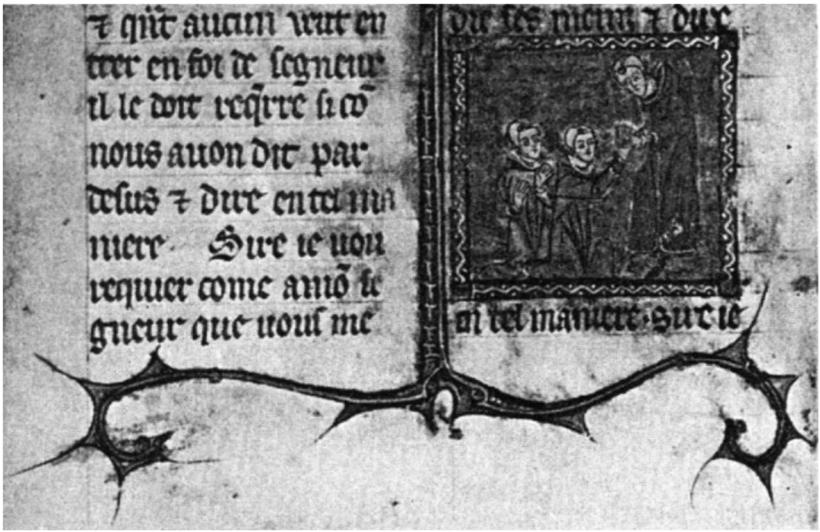 ⁊ q̃nt aucun veut en
trer en foi de segneur
il le doit reqͥrre si cõ
nous auon dit par
desus ⁊ dire en tel ma
niere Sire ie uou
requier come amõ se
gneur que uous me
die ses meins ⁊ dire
en tel maniere. sire ie